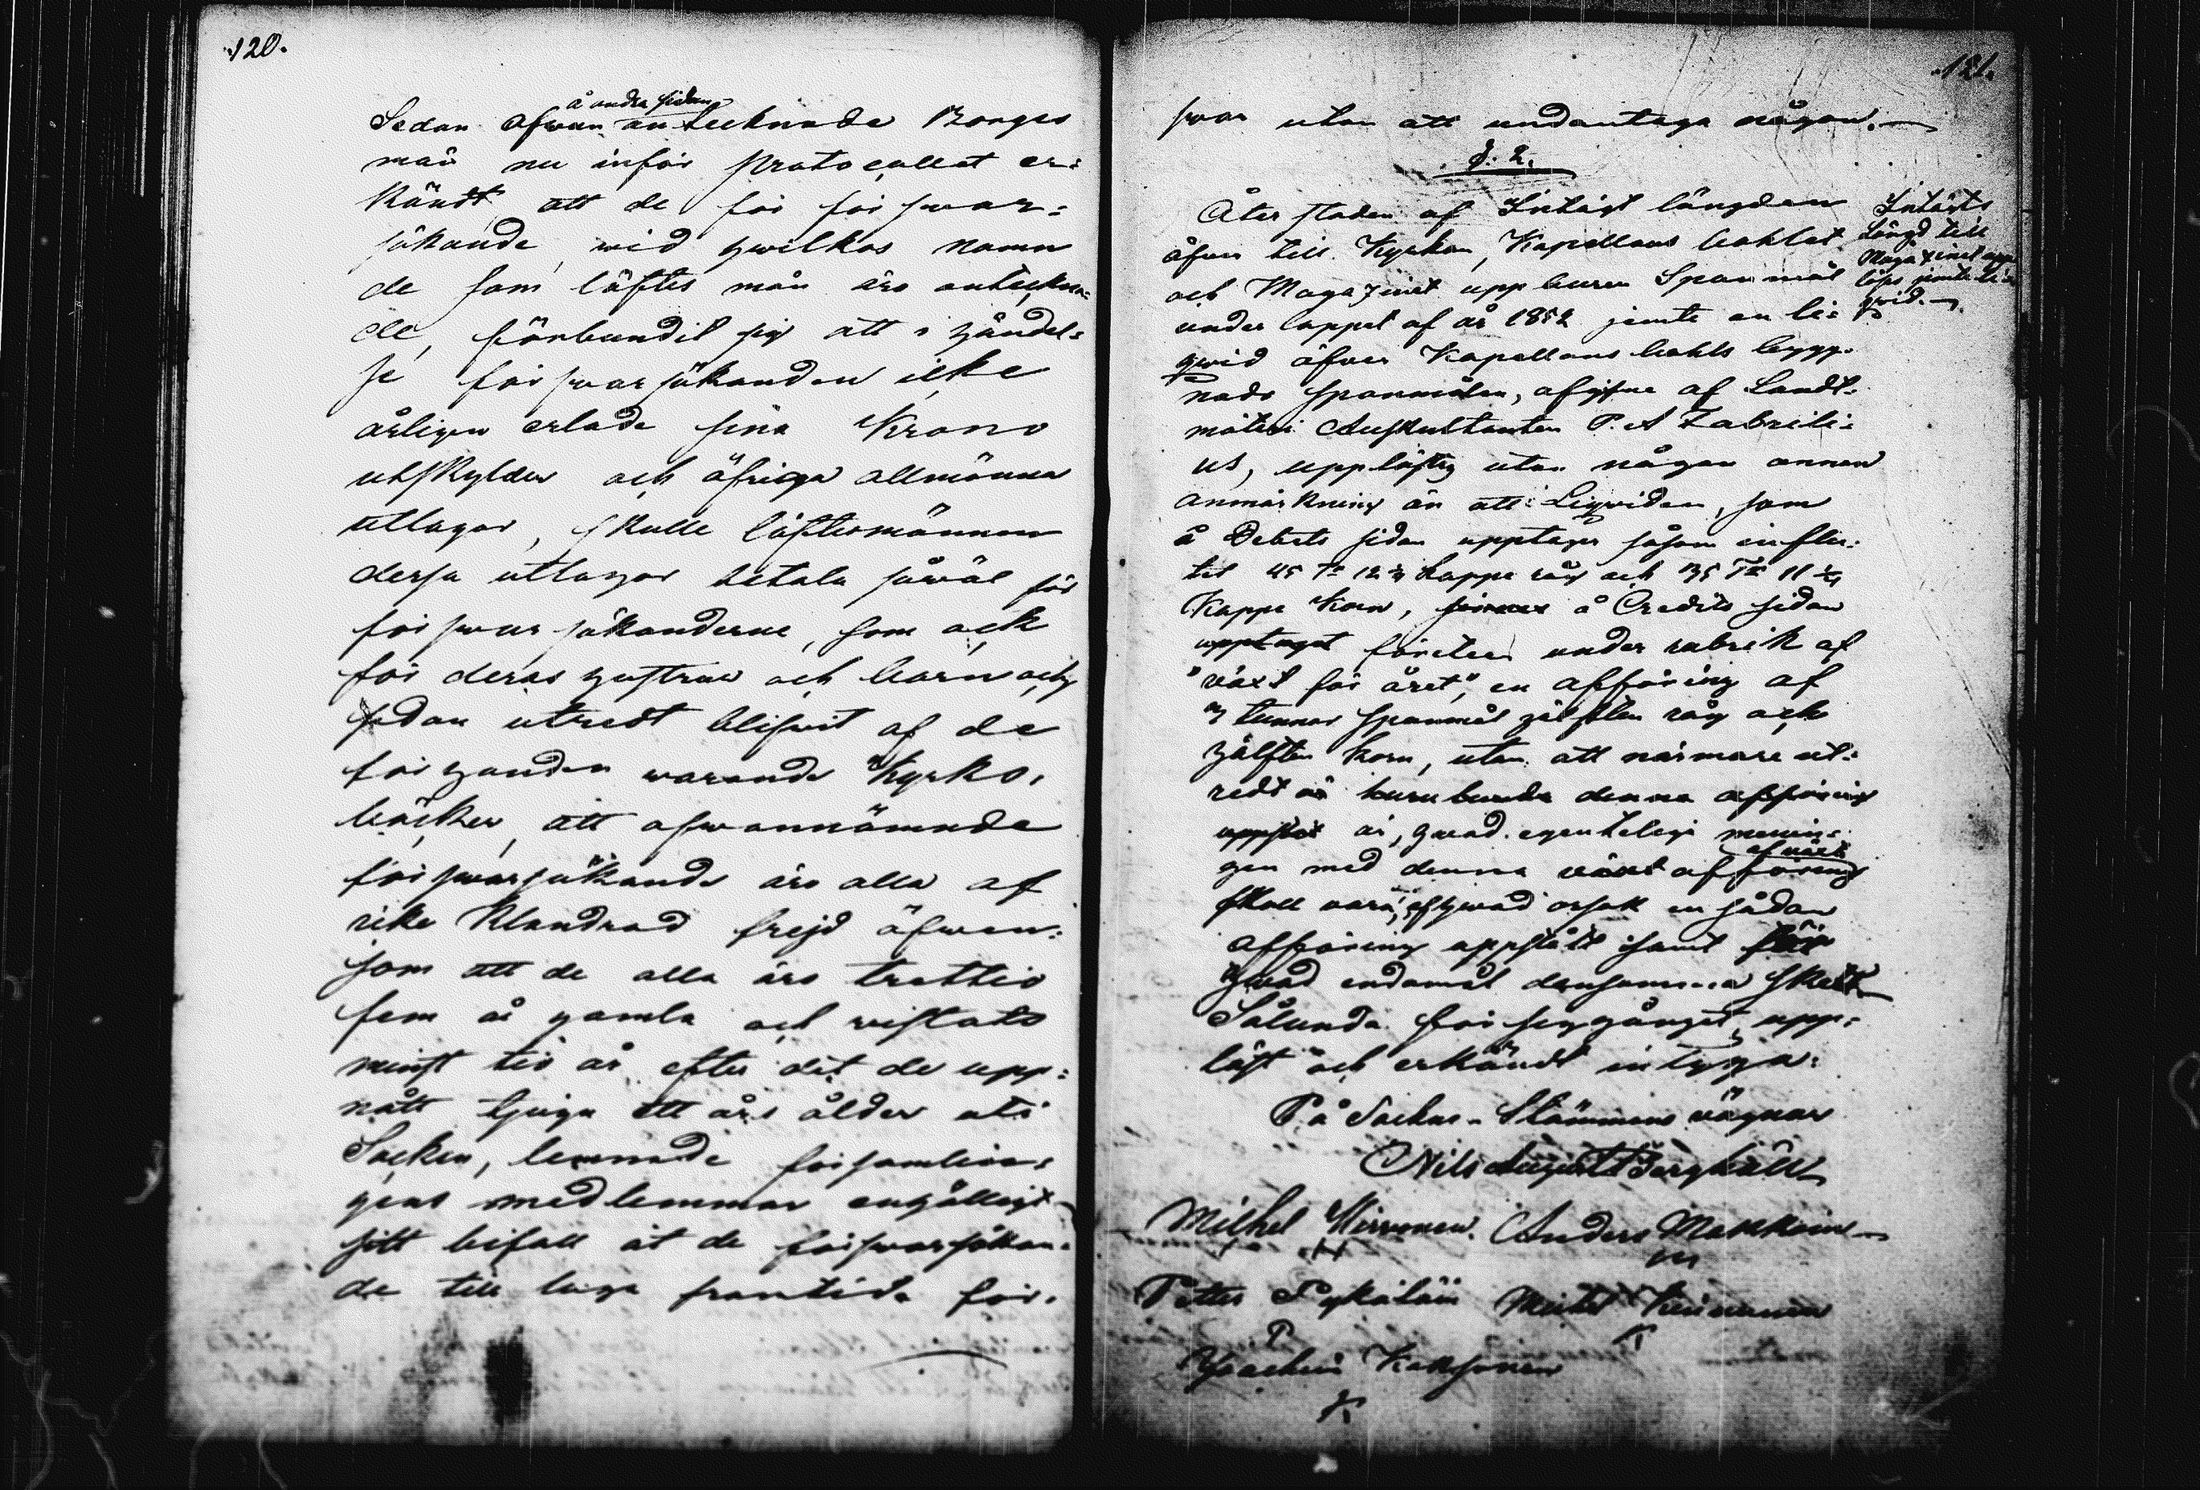 120.
å andra sidan
Sedan ofwan antecknade Borges
män nu inför protocollet er=
kändt att de för förswar=
sökande, wid hwilkas namn
de som löftes män äro anteckna=
de, förbundit sig att i händel=
se förswarsökanden icke
årligen erlade sina Krono
utskylder och öfriga allmänna
utlagor, skulle löftesmännen
dessa utlagor betala såwäl för
förswarsökanderne, som ock
för deras hustrur och barn och
sedan utredt blifwit af de
förhanden warande Kyrko,
böcker, att ofwannämnde
förswarsökande äro alla af
icke klandrad frejd äfwen=
som att de alla äro trettio
fem år gamla och wistats
minst tio år efter det de upp=
nått tjugu ett års ålder uti
Socken, lemnade församlin=
gens medlemmar enhälligt
sitt bifall åt de förswarsökan=
de till laga framtida för=
121.
swar utan att undantaga någon.
§. 2.
Åter stoden af Intägt längden
öfver till Kyrkan, Kapellans bohlet
och Magazinet uppburen Spanmål
under loppet af år 1852 jemte en li=
qvid öfver Kapellans bohls bygg=
nads spanmålen, afgifne af Landt=
mäteri Auskultanten P. A Fabriti=
us, upplästes utan någon annan
anmärkning än att Liqviden, som
å Debets sidan upptager såsom influ=
tit 45 Tr 12 ⅔ kappe råg och 35 Tr 11 ¼
Kappe Korn, finnes å Credits sidan
upptaget företer under rubrik af
"växt för året", en afföring af
3 tunnor spanmål hälften råg och
hälften korn, utan att närmare ut=
redt är huruledes denna afföring
uppstått är, hvad egenteliga menin=
af växt
gen med denna växt afföring
skall vara, af hwad orsak en sådan
afföring uppstått samt för
hvad endamål densamma skett
Sålunda försiggånget, upp=
läst och erkändt intyga:
På Sockne-Stämmans vägnar
Nils August Bergháll
Michel Hirvonen. Anders Makkoin
H M
Petter Pykäläin Michel Keinonen
P K
Joachim Kaksonen
K
Intägts
Längd till
Magazinet upp
läses jemte li=
qvid.